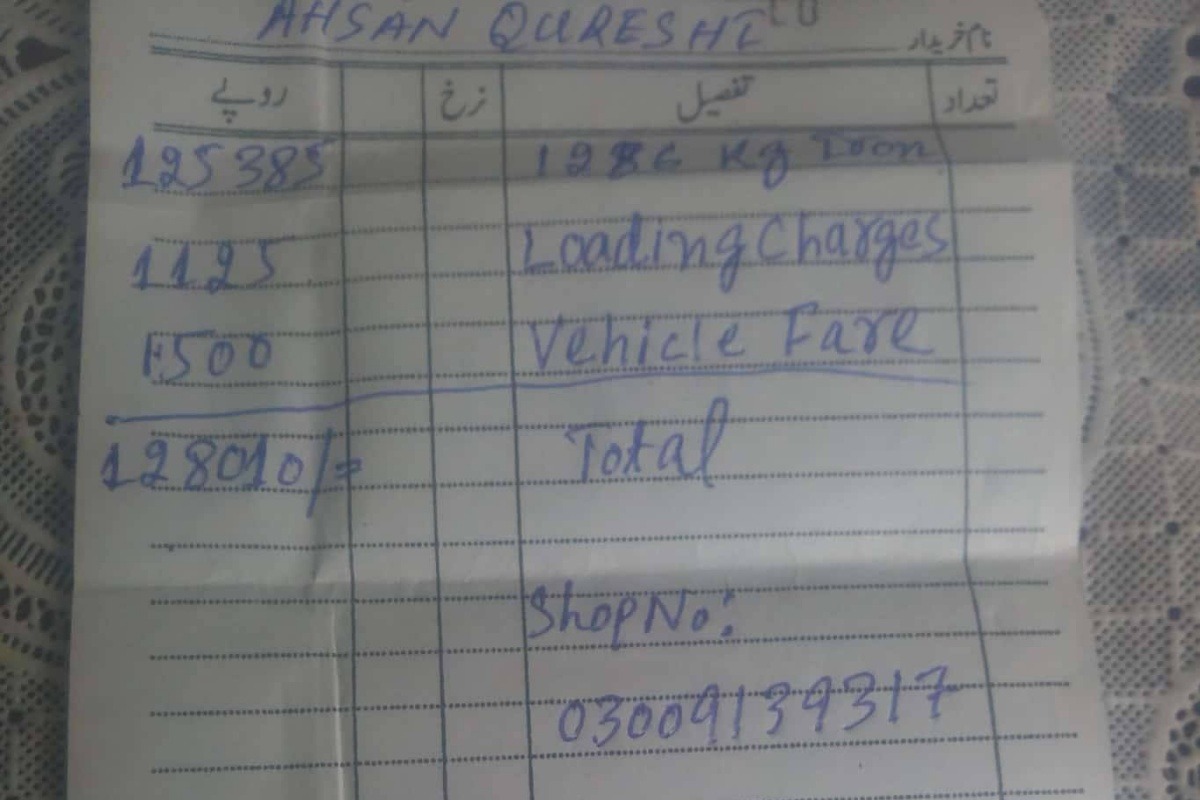 AHSAN QURESHI نام خریدار
تعداد تفصیل نرخ روپے
1286 Kg Iron 125385
Loading Charges 1125
Vehicle Fare 1500
Total 128010/=
Shop No:
03009139317